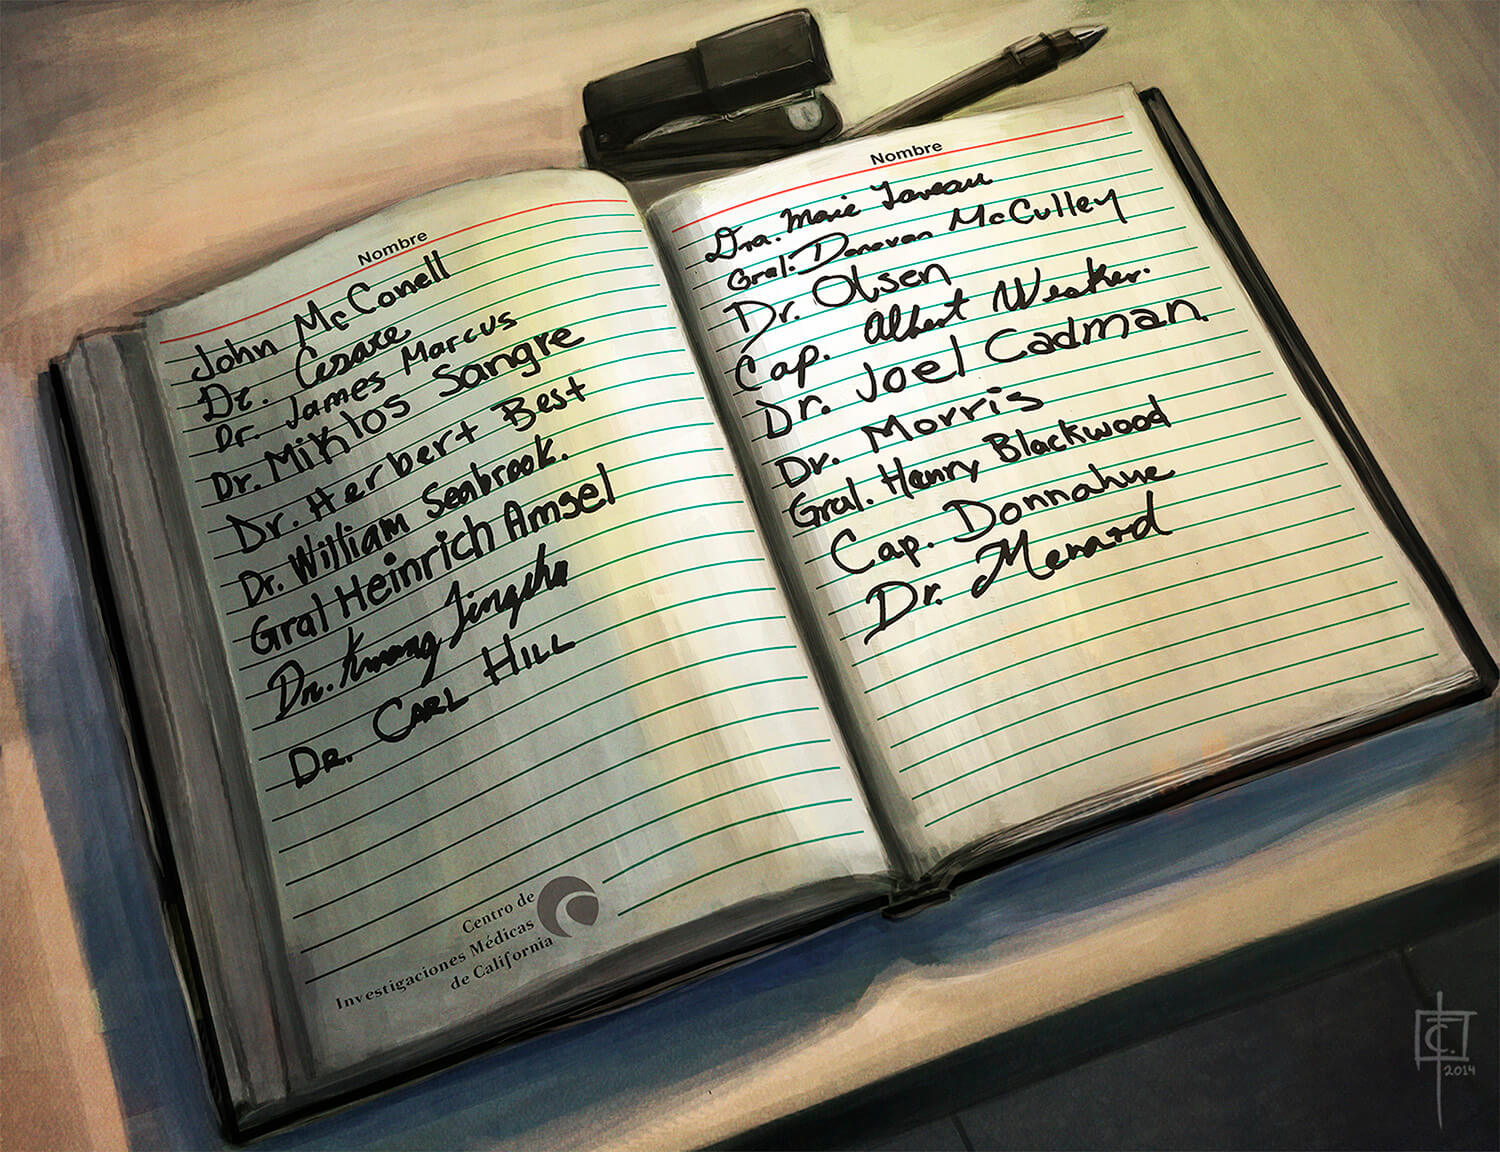 Nombre
John McConell
Dr. Cesare
Dr. James Marcus
Dr. Miklos Sangre
Dr. Herbert Best
Dr. William Seabrook.
Gral Heinrich Amsel
Dr. Kwang Jingsha
Dr. Carl Hill
Centro de
Investigaciones Médicas
de California
Nombre
Dra. Marie Laveau
Gral. Donovan McCulley
Dr. Olsen
Cap. Albert Wesker.
Dr. Joel Cadman.
Dr. Morris
Gral. Henry Blackwood
Cap. Donnahue
Dr. Menard
C.
2014